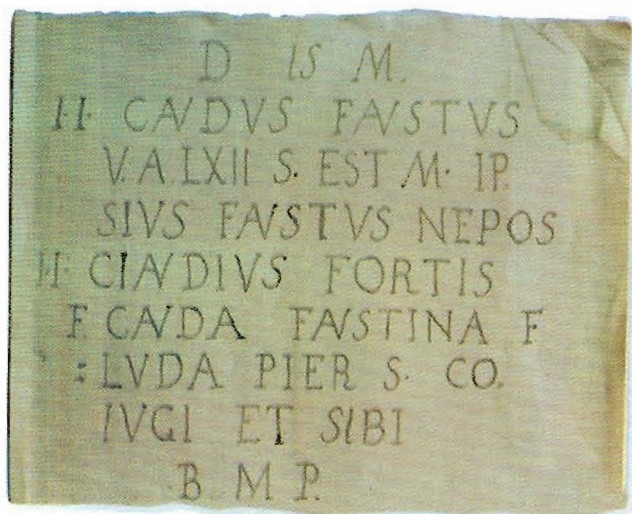 D IS M.
H· CAVDVS FAVSTVS
V. A. LXII S. EST M· IP.
SIVS FAVSTVS NEPOS
H· CIAVDIVS FORTIS
F. CAVDA FAVSTINA F
: LVDA PIER S· CO.
IVGI ET SIBI
B. M P.